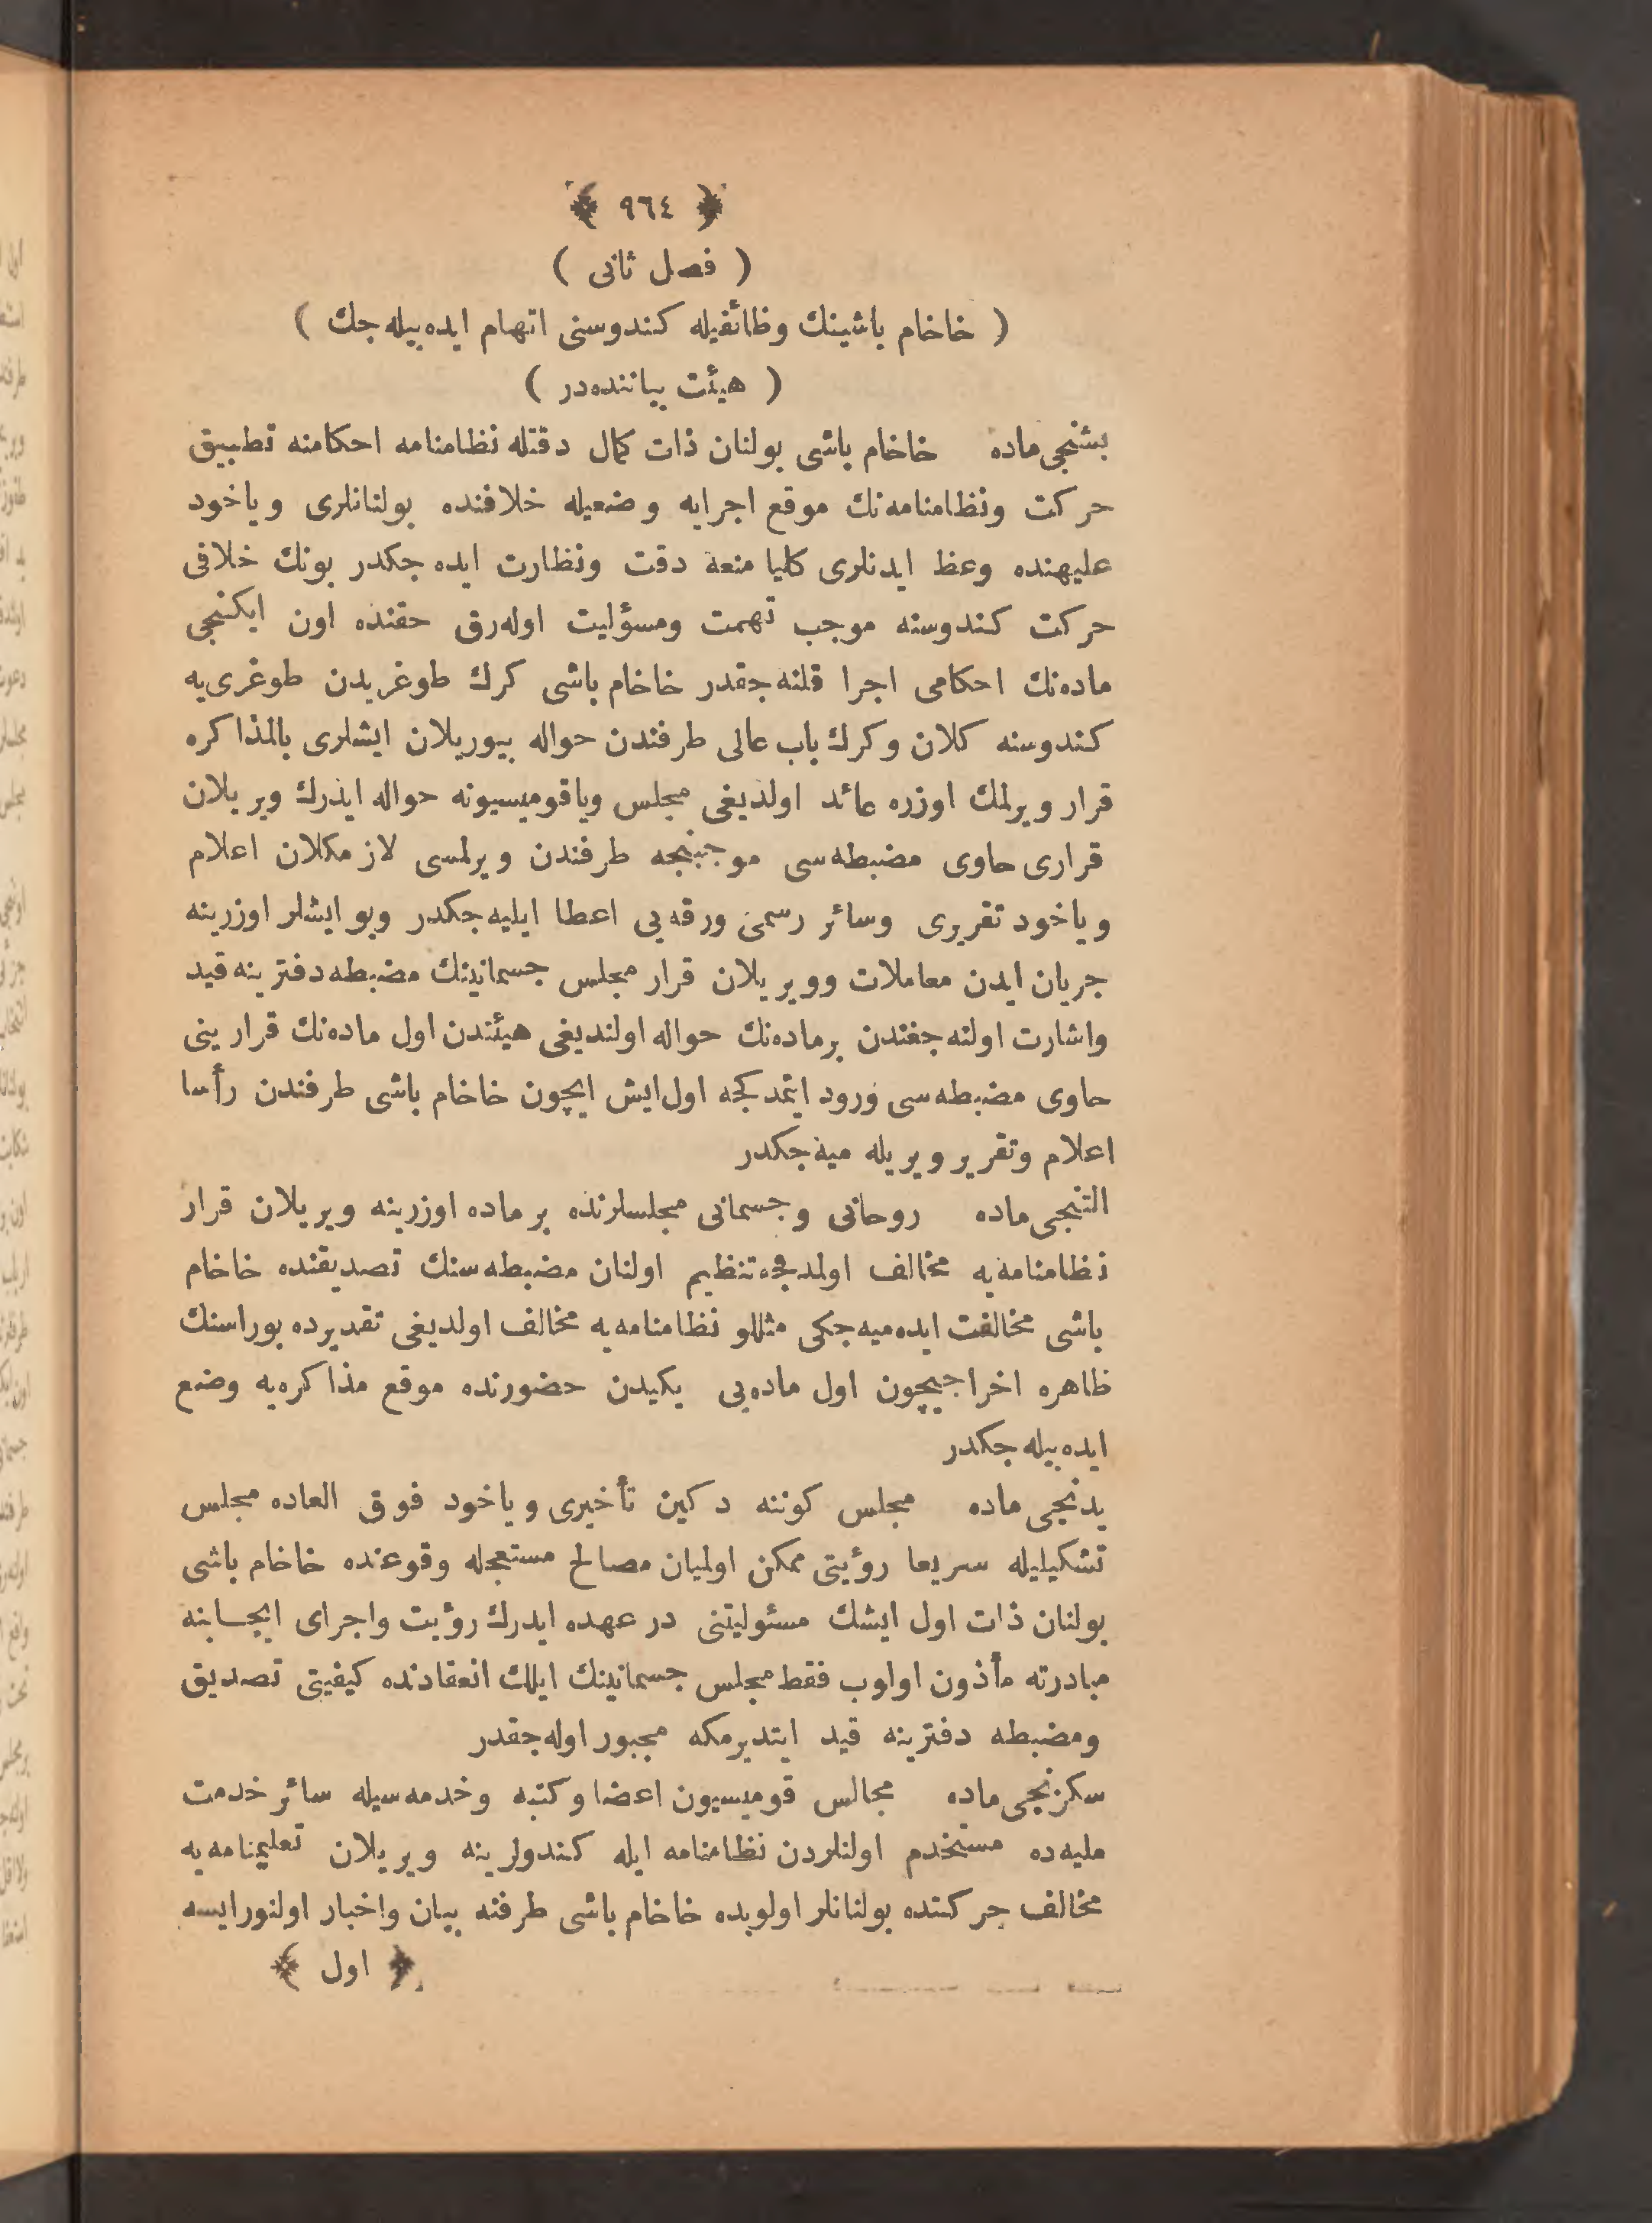 ﴿ ٩٦٤ ﴾
( فصل ثانى )
( خاخام باشينك وظائفيله كندوسنى اتهام ايده‌بيله‌جك )
( هيئت بياننده‌در )
بشنجى ماده خاخام باشى بولنان ذات كمال دقتله نظامنامه احكامنه تطبيق
حركت ونظامنامه‌نك موقع اجرايه وضعيله خلافنده بولنانلرى وياخود
عليهنده وعظ ايدنلرى كليا منعه دقت ونظارت ايده‌جكدر بونك خلافى
حركت كندوسنه موجب تهمت ومسؤليت اوله‌رق حقنده اون ايكنجى
ماده‌نك احكامى اجرا قلنه‌جقدر خاخام باشى كرك طوغريدن طوغرى‌يه
كندوسنه كلان وكرك باب عالى طرفندن حواله بيوريلان ايشلرى بالمذاكره
قرار ويرلمك اوزره عائد اولديغى مجلس وياقوميسيونه حواله ايدرك ويريلان
قرارى حاوى مضبطه‌سى موجبنجه طرفندن ويرلمسى لازمكلان اعلام
وياخود تقريرى وسائر رسمى ورقه‌يى اعطا ايليه‌جكدر وبو ايشلر اوزرينه
جريان ايدن معاملات وويريلان قرار مجلس جسمانينك مضبطه دفترينه قيد
واشارت اولنه‌جغندن برماده‌نك حواله اولنديغى هيئتدن اول ماده‌نك قرارينى
حاوى مضبطه‌سى ورود ايتمدكجه اول‌ايش ايچون خاخام باشى طرفندن رأسا
اعلام وتقرير ويريله ميه‌جكدر
التنجى ماده روحانى وجسمانى مجلسلرنده بر ماده اوزرينه ويريلان قرار
نظامنامه‌يه مخالف اولمدقجه تنظيم اولنان مضبطه‌سنك تصديقنده خاخام
باشى مخالفت ايده‌ميه‌جكى مثللو نظامنامه‌يه مخالف اولديغى تقديرده بوراسنك
ظاهره اخراجيچون اول ماده‌يى يكيدن حضورنده موقع مذاكره‌يه وضع
ايده‌بيله‌جكدر
يدنجى ماده مجلس كوننه دكين تأخيرى وياخود فوق العاده مجلس
تشكيليله سريعا رؤيتى ممكن اولميان مصالح مستعجله وقوعنده خاخام باشى
بولنان ذات اول ايشك مسئوليتنى درعهده ايدرك رؤيت واجراى ايجابنه
مبادرته مأذون اولوب فقط مجلس جسمانينك ايلك انعقادنده كيفيتى تصديق
ومضبطه دفترينه قيد ايتديرمكه مجبور اوله‌جقدر
سكزنجى ماده مجالس قوميسيون اعضا وكتبه وخدمه‌سيله سائر خدمت
مليه‌ده مستخدم اولنلردن نظامنامه ايله كندولرينه ويريلان تعليمنامه‌يه
مخالف حركتده بولنانلر اولوبده خاخام باشى طرفنه بيان واخبار اولنورايسه
﴿ اول ﴾